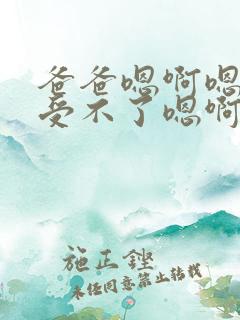 爸爸嗯啊嗯
受不了嗯啊
施正铿
未经同意禁止转载